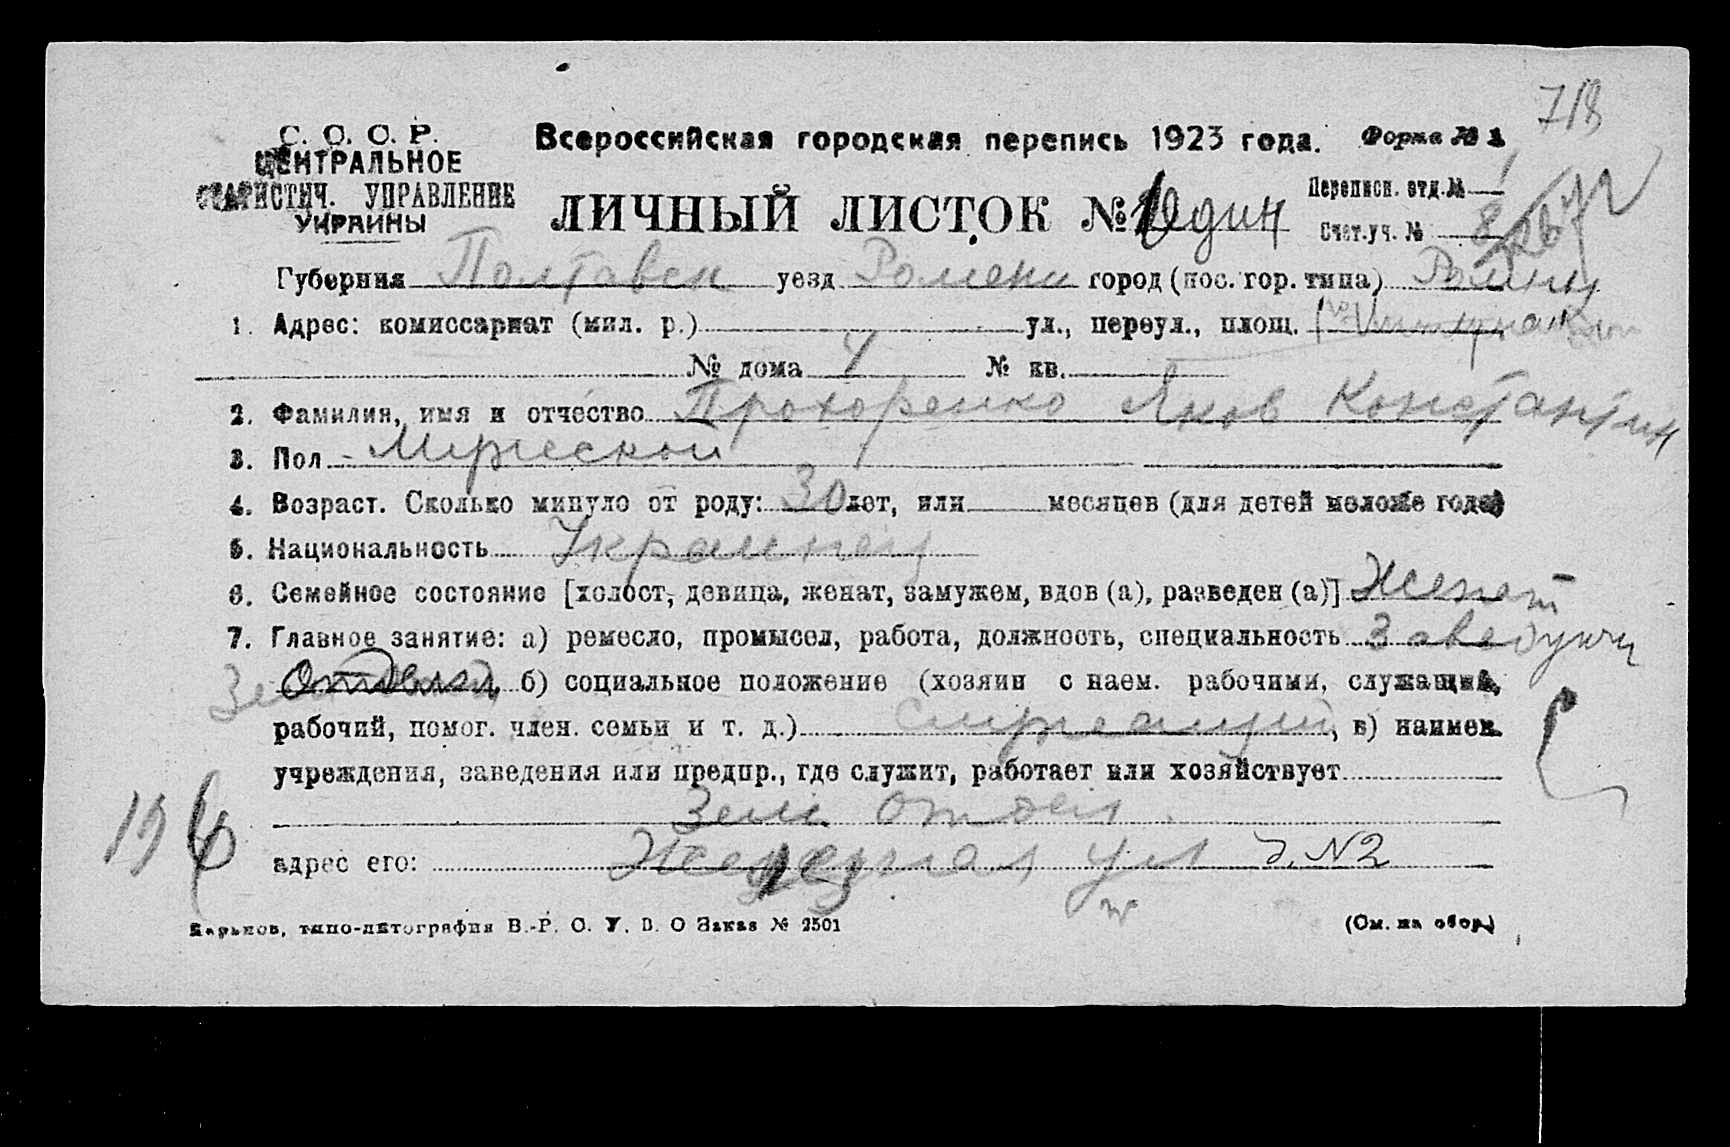 718
С. С. С. Р.
ЦЕНТРАЛЬНОЕ
СТАТИСТИЧ. УПРАВЛЕНИЕ
УКРАИНЫ
Всероссийская городская перепись 1923 года. Форма № 1
ЛИЧНЫЙ ЛИСТОК № Один
Переписн. отд. № 1
Счет. уч. № 8
Губерния Полтавск уезд Роменск город (пос. гор. типа) Ромны
1. Адрес: комиссариат (мил. р.) ул., переул., площ.
№ дома 4 № кв.
2. Фамилия, имя и отчество Прохоренко Яков Константин
3. Пол - Мужеской
4. Возраст. Сколько минуло от роду: 30 лет, или месяцев (для детей моложе года)
5. Национальность Украинец
6. Семейное состояние [холост, девица, женат, замужем, вдов (а), разведен (а)] Женат
7. Главное занятие: а) ремесло, промысел, работа, должность, специальность Заведующ
Зем отделом б) социальное положение (хозяин с наем. рабочими, служащий,
рабочий, помог. член. семьи и т. д.) служащий, в) наимен.
учреждения, заведения или предпр., где служит, работает или хозяйствует
Зем отдел.
адрес его: ул д. N2
Харьков, типо-литография В.-Р. О. У. В. О Заказ № 2501 (См. на обор.)